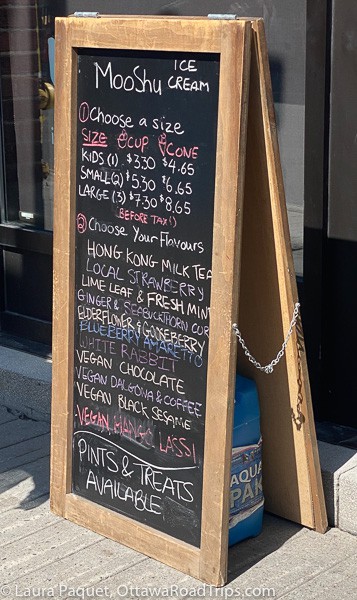 MooShu ICE CREAM
① Choose a size
SIZE CUP CONE
KIDS (1) $3.30 $4.65
SMALL (2) $5.30 $6.65
LARGE (3) $7.30 $8.65
(BEFORE TAX!)
② Choose Your Flavours
HONG KONG MILK TEA
LOCAL STRAWBERRY
LIME LEAF & FRESH MINT
GINGER & SEABUCKTHORN CUR
ELDERFLOWER & GOOSEBERRY
BLUEBERRY AMARETTO
WHITE RABBIT
VEGAN CHOCOLATE
VEGAN DALGONA & COFFEE
VEGAN BLACK SESAME
VEGAN MANGO LASSI
PINTS & TREATS
AVAILABLE
AQUA
PAK
© Laura Paquet, OttawaRoadTrips.com